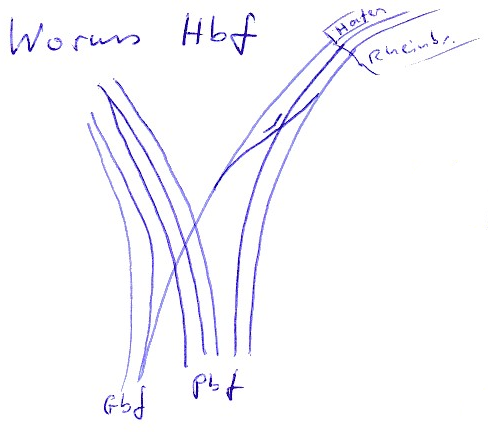 Worms Hbf
Hafen
Rheinbr.
Gbf
Pbf